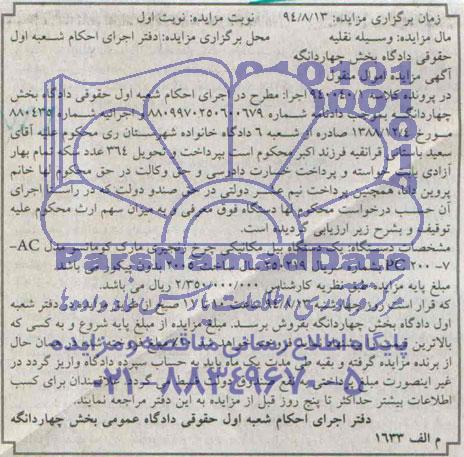 زمان برگزاری مزایده: ۹۴/۸/۱۳ نوبت مزایده: نوبت اول
مال مزایده: وسیله نقلیه محل برگزاری مزایده: دفتر اجرای احکام شعبه اول
حقوقی دادگاه بخش چهاردانگه
آگهی مزایده اموال منقول
در پرونده کلاسه اجرا: مطرح در اجرای احکام شعبه اول حقوقی دادگاه بخش
چهاردانگه به موجب دادنامه شماره ۸۸۰۹۹۷۰۲۵۰۶۰۰۶۷۹ و اجرائیه شماره ۸۸۰۴۳۵
مورخ ۱۳۸۸/۱۲/۴ صادره از شعبه ۶ دادگاه خانواده شهرستان ری محکوم علیه آقای
سعید فرزند اکبر محکوم است بپرداخت و تحویل ۳۶۴ عدد سکه تمام بهار
آزادی بابت خواسته و پرداخت خسارت دادرسی و حق وکالت در حق محکوم لها خانم
پروین و همچنین پرداخت نیم عشر دولتی در حق صندوق دولت که در راستای اجرای
آن حسب درخواست محکوم لها دستگاه فوق معرفی و به میزان سهم ارث محکوم علیه
توقیف و بشرح زیر ارزیابی گردیده است.
مشخصات دستگاه: یک دستگاه بیل مکانیکی چرخ زنجیری مارک کوماتسو مدل AC-
PC ۲۰۰ -۷ بشماره سریال ساخت ۲۰۰۵ بدون پیکور می باشد.
مبلغ پایه مزایده طبق نظریه کارشناس ۲/۳۵۰/۰۰۰/۰۰۰ ریال می باشد.
که قرار است روز چهارشنبه ۹۴/۸/۱۳ ساعت ۱۰ تا ۱۱ صبح از طریق مزایده در دفتر شعبه
اول دادگاه بخش چهاردانگه بفروش برسد. مبلغ مزایده از مبلغ پایه شروع و به کسی که
بالاترین
از برنده مزایده گرفته و بقیه طی مدت یک ماه باید به حساب سپرده دادگاه واریز گردد در
غیر اینصورت مبلغ به نفع صندوق دولت ضبط می گردد. علاقمندان برای کسب
اطلاعات بیشتر حداکثر تا پنج روز قبل از مزایده به این دفتر مراجعه نمایند.
دفتر اجرای احکام شعبه اول حقوقی دادگاه عمومی بخش چهاردانگه
م الف ۱۶۳۳
ParsNamadData
پایگاه اطلاع رسانی مناقصه و مزایده
۰۲۱-۸۸۳۴۹۶۷۰-۵